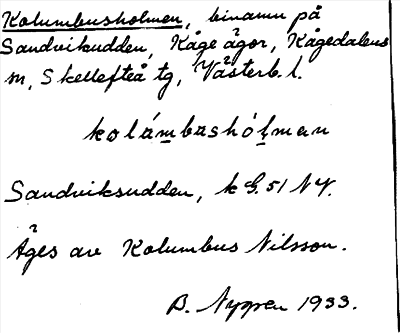 Kolumbusholmen, binamn på
Sandvikudden, Kåge ägor, Kågedalens
m, Skellefteå tg, Västerb. l.
kolámbʉshólman
Sandviksudden, k G. 51 NV.
Äges av Kolumbus Nilsson.
B. 1933.